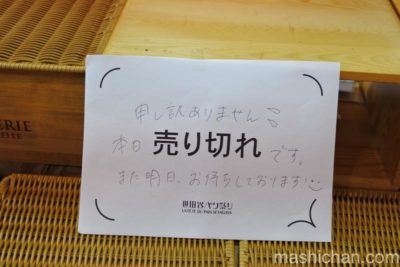 申し訳ありません
本日 売り切れ です。
また明日、お待ちしております
世田谷パン祭り
LA FETE DU PAIN SETAGAYA
ERIE
ELLE
mashichan.com